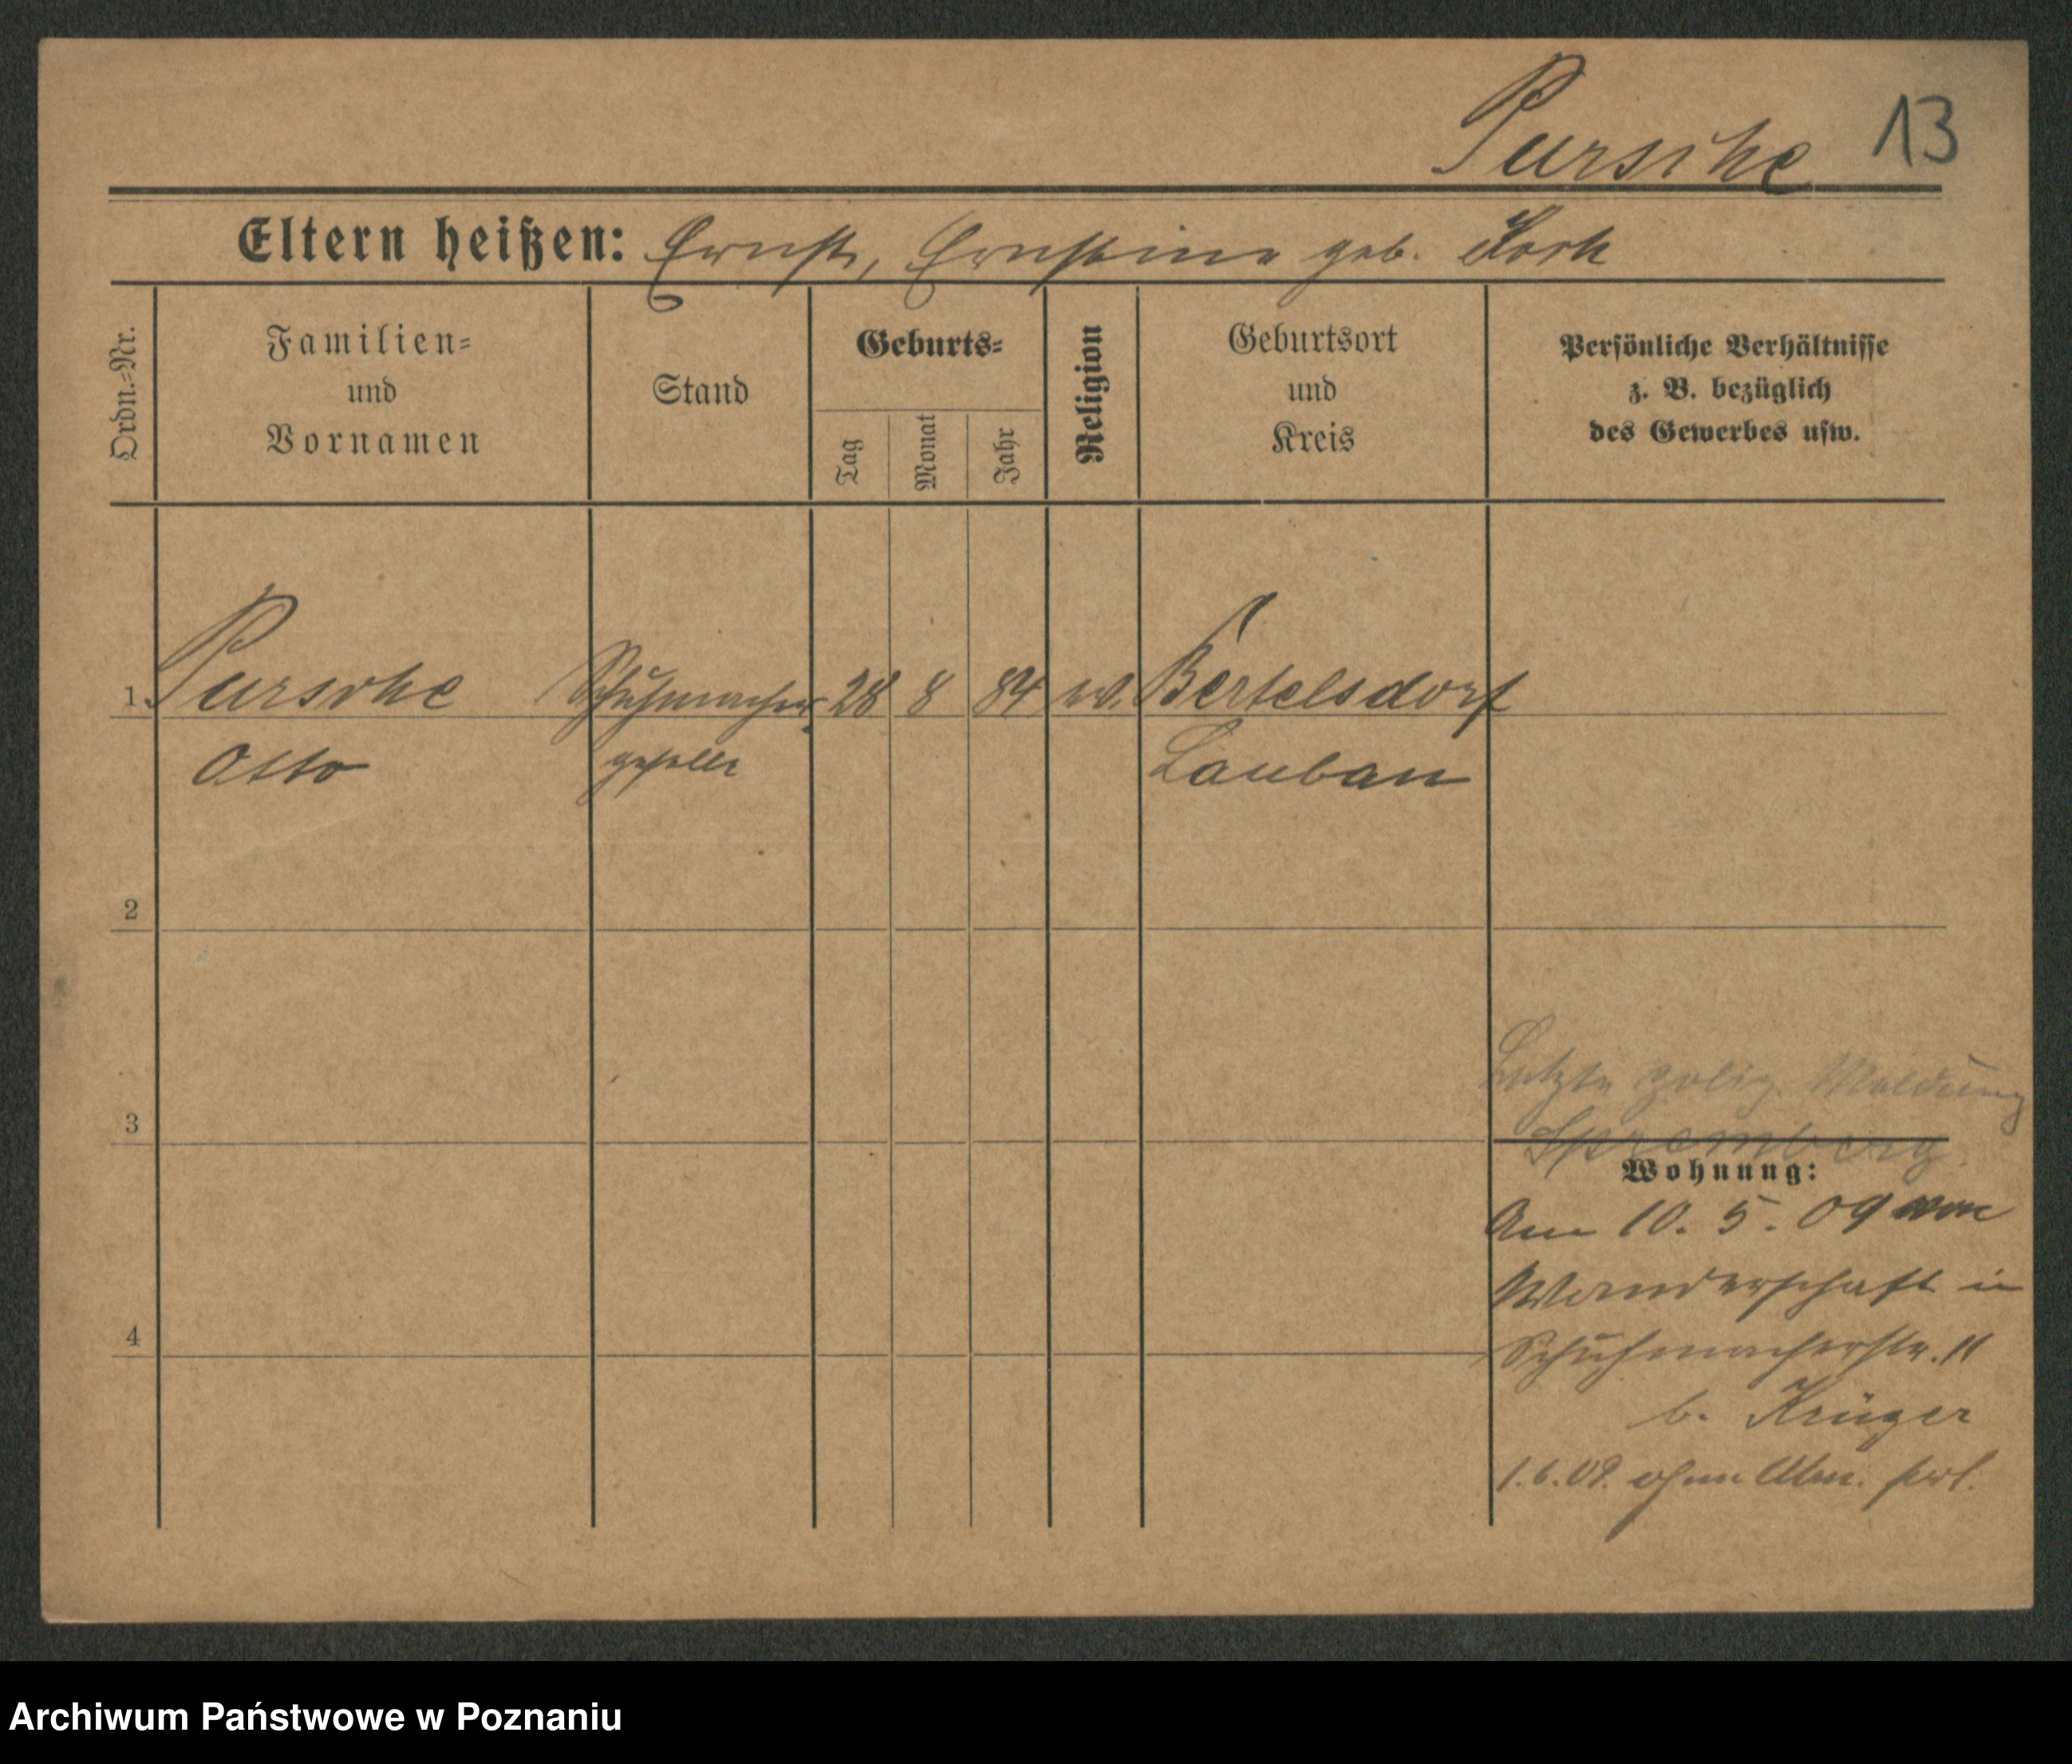 Pursche 13
Eltern heißen: Ernst, Ernstine geb.
Ordn.=Nr.
Familien=
und
Vornamen
Stand
Geburts=
Tag
Monat
Jahr
Religion
Geburtsort
und
Kreis
Persönliche Verhältnisse
z. B. bezüglich
des Gewerbes usw.
1. Pursche Schuhmacher= 28 8 84 ev. Bertelsdorf
Otto geselle Lauban
2
Letzte poliz. Meldung
3
Spremberg
Wohnung:
Am 10. 5. 09 von
Wanderschaft in
4 Schuhmacherstr. 11
b. Krüger
1.6.09. ohne Abm.
Archiwum Państwowe w Poznaniu